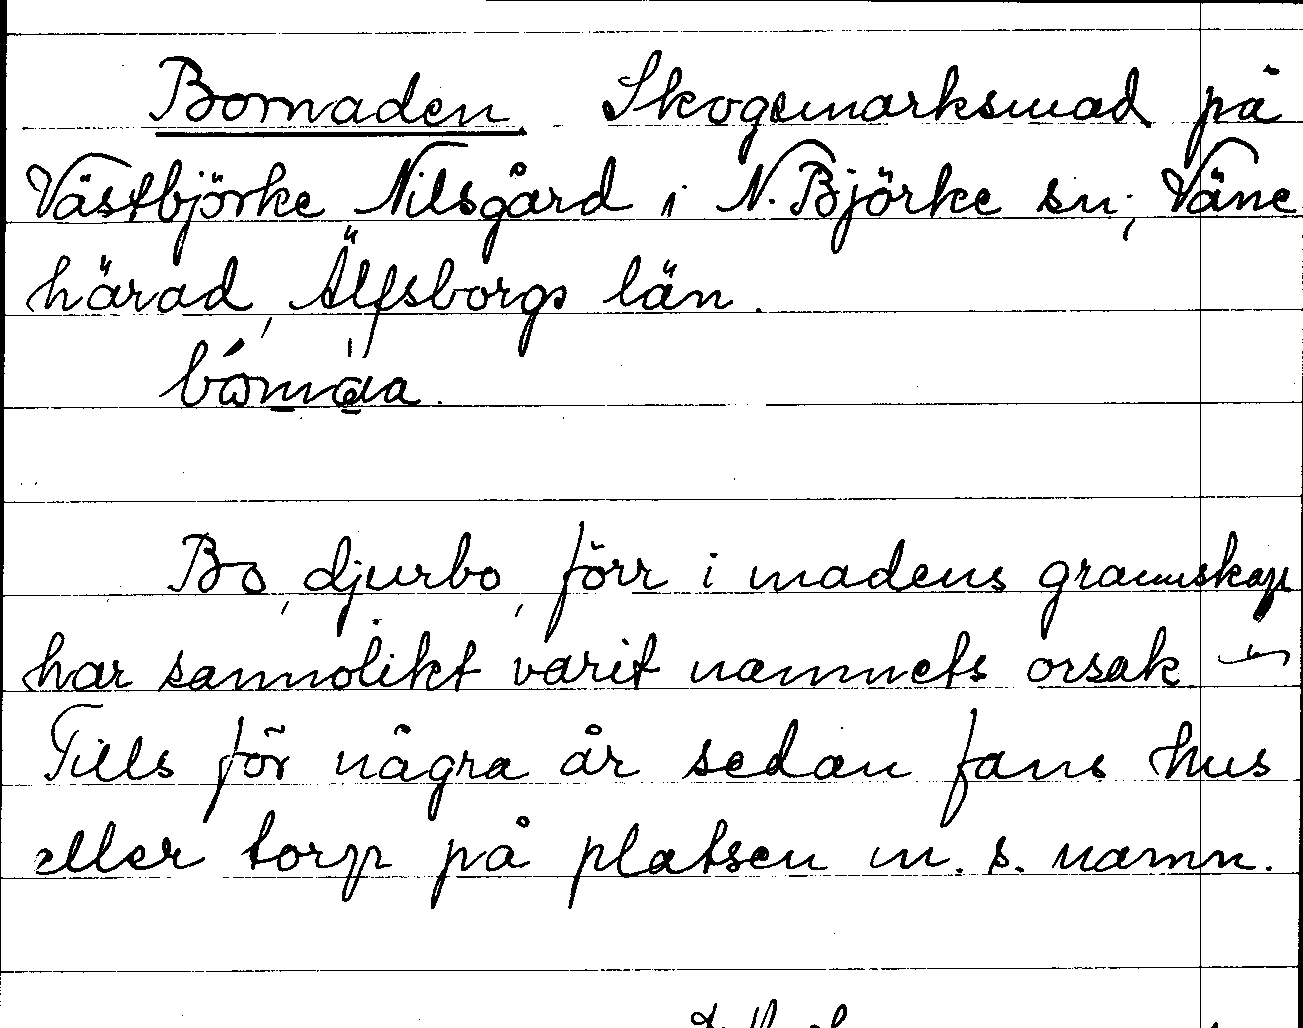 Bomaden. Skogsmarksmad på
Västbjörke Nilsgård i N. Björke sn; Väne
härad, Älfsborgs län.
Bo, djurbo, förr i madens grannskap
har sannolikt varit namnets orsak –
Tills för några år sedan fans hus
eller torp på platsen m. s. namn.